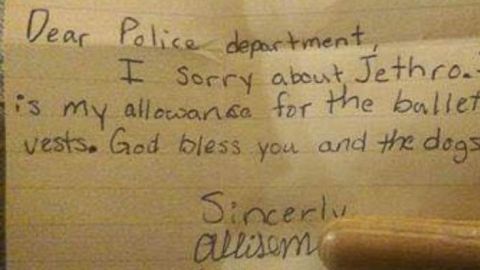 Dear Police department,
I sorry about Jethro.
is my allowanse for the bullet
vests. God bless you and the dogs
Sincerly
Allison